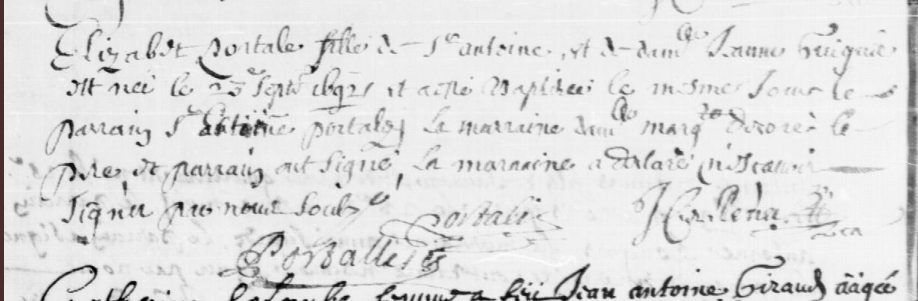 Elizabet portale fille de Sr antoine et de damlle Jeanne
est née le 23e Septre et a esté Baptisée le mesme Jour le
parrain Sr antoine portale la marraine damlle margte le
pere et parrain ont signé la marraine a declaré n'scavoir
signer par nous soubzné
Portalié
Portallés
Catherine femme a feu Jean antoine Giraud aâgée